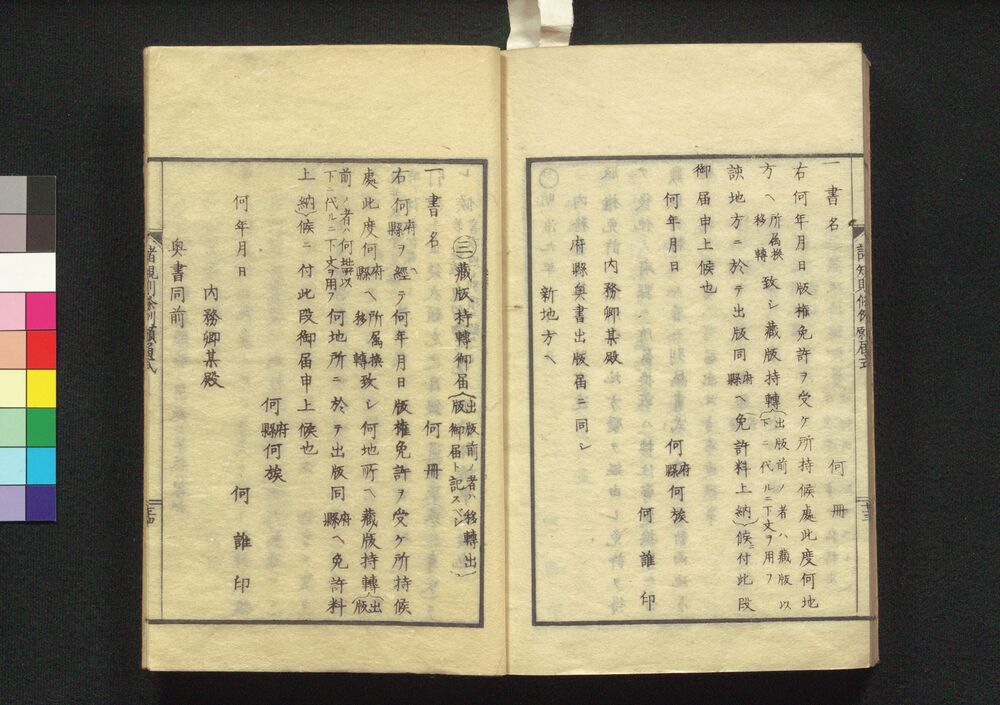 一 書名 何冊
右何年月日版権免許ヲ受ケ所持候處此度何地
方ヘ所属換移轉致シ藏版持轉(出版前ノ者ハ藏版以下ニ代ルニ下文ヲ用フ
該地方ニ於テ出版同府縣ヘ免許料上納)候付此段
御届申上候也
何年月日 何府縣何族
何誰印
内務卿某殿
府縣奥書出版届ニ同シ
新地方ヘ
㊂藏版持轉御届(出版前ノ者ハ移轉出版御届ト記スベシ)
一 書名 何冊
右何府縣ヲ經テ何年月日版權免許ヲ受ケ所持候
處此度何府縣ヘ所属換移轉致シ何地所ヘ藏版持轉(出版
前ノ者ハ何地以下ニ代ルニ下文ヲ用フ何地所ニ於テ出版同府縣ヘ免許料
上納)候ニ付此段御届申上候也
何府縣何族
何年月日 何誰印
内務卿某殿
奥書同前
諸規則條例願届式